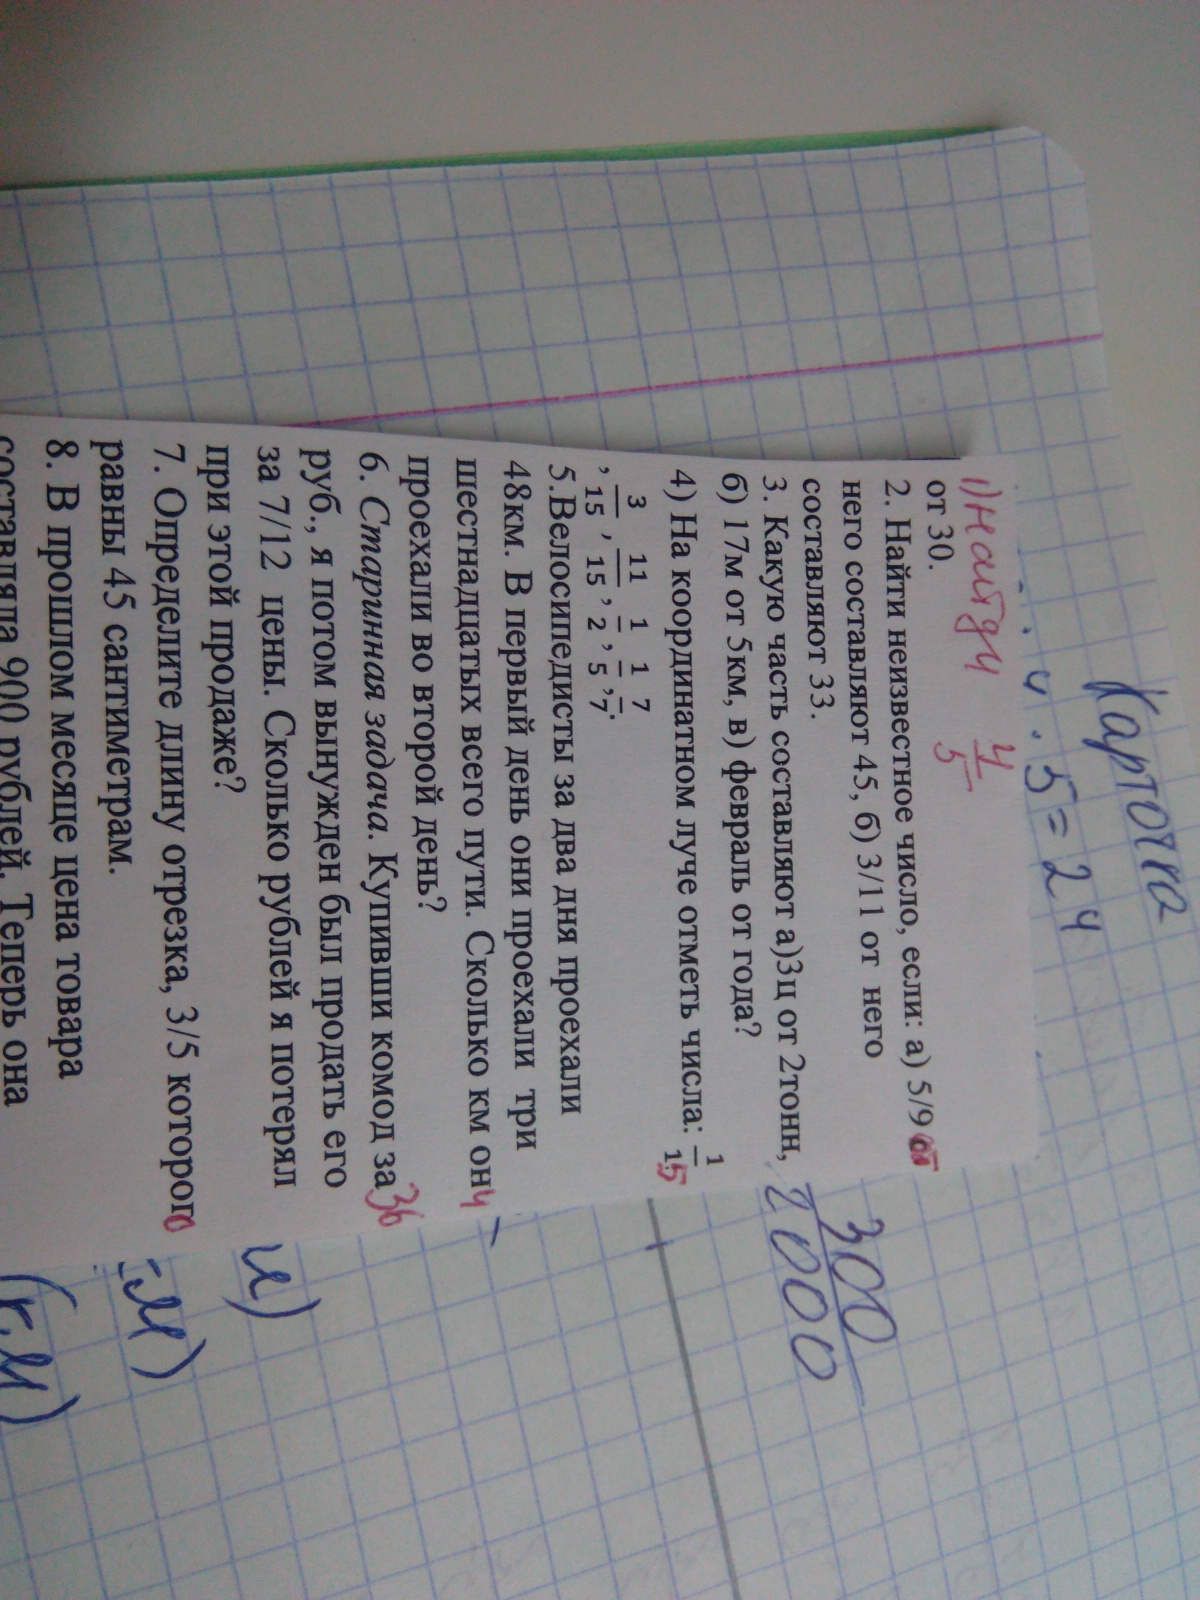 Карточка
4 . 5 = 24
1) Найди 4/5
от 30.
2. Найти неизвестное число, если: а) 5/9 от
него составляют 45, б) 3/11 от него
составляют 33.
3. Какую часть составляют а)3ц от 2тонн,
б) 17м от 5км, в) февраль от года?
300
2000
4) На координатном луче отметь числа: 1/15
, 3/15, 11/15, 1/2, 1/5, 7/7.
5.Велосипедисты за два дня проехали
48км. В первый день они проехали три
шестнадцатых всего пути. Сколько км они
проехали во второй день?
6. Старинная задача. Купивши комод за 36
руб., я потом вынужден был продать его
за 7/12 цены. Сколько рублей я потерял
при этой продаже?
и)
7. Определите длину отрезка, 3/5 которого
равны 45 сантиметрам.
м)
8. В прошлом месяце цена товара
составляла 900 рублей. Теперь она
(г.м)